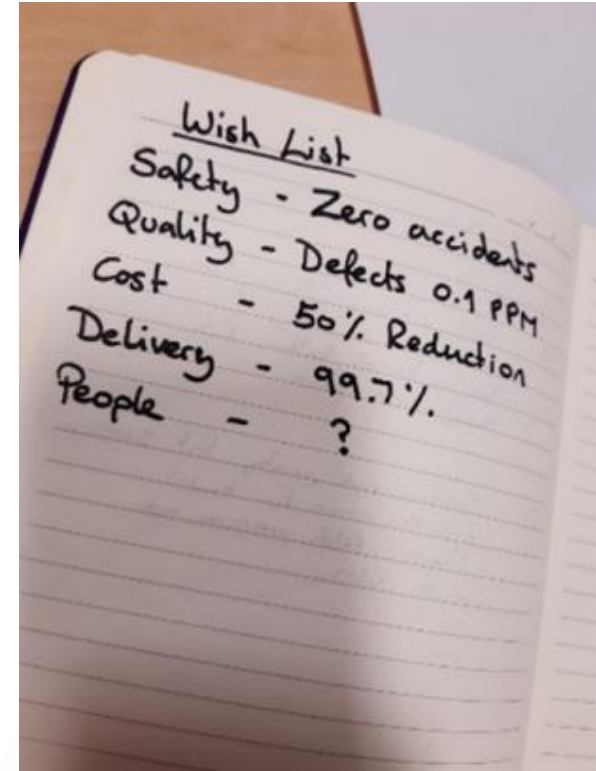 Wish List
Safety - Zero accidents
Quality - Defects 0.1 PPM
Cost - 50% Reduction
Delivery - 99.7%.
People - ?